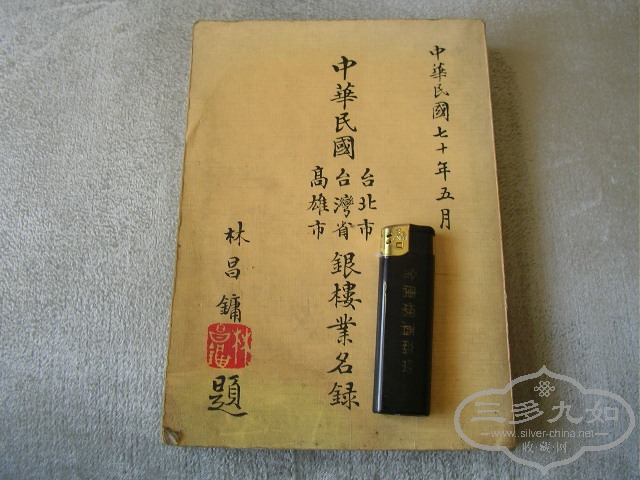 中華民國七十年五月
中華民國
台北市
台灣省
高雄市
銀樓業名録
林昌鏞
題
三多九如
www.silver-china.net
收藏网